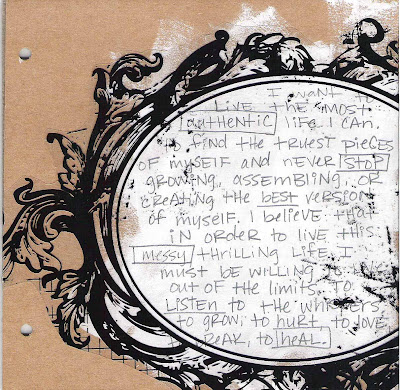 I want to
LIVE THE MOST
authentic life I can.
to FIND THE TRUEST PIECES
OF MYSELF AND NEVER STOP
growing, assembling, or
creating the best version
of myself. I believe that
in order to live this
messy thrilling life I
must be willing
out of the limits. To
Listen to the whispers,
to grow, to hurt, to love,
to heal.